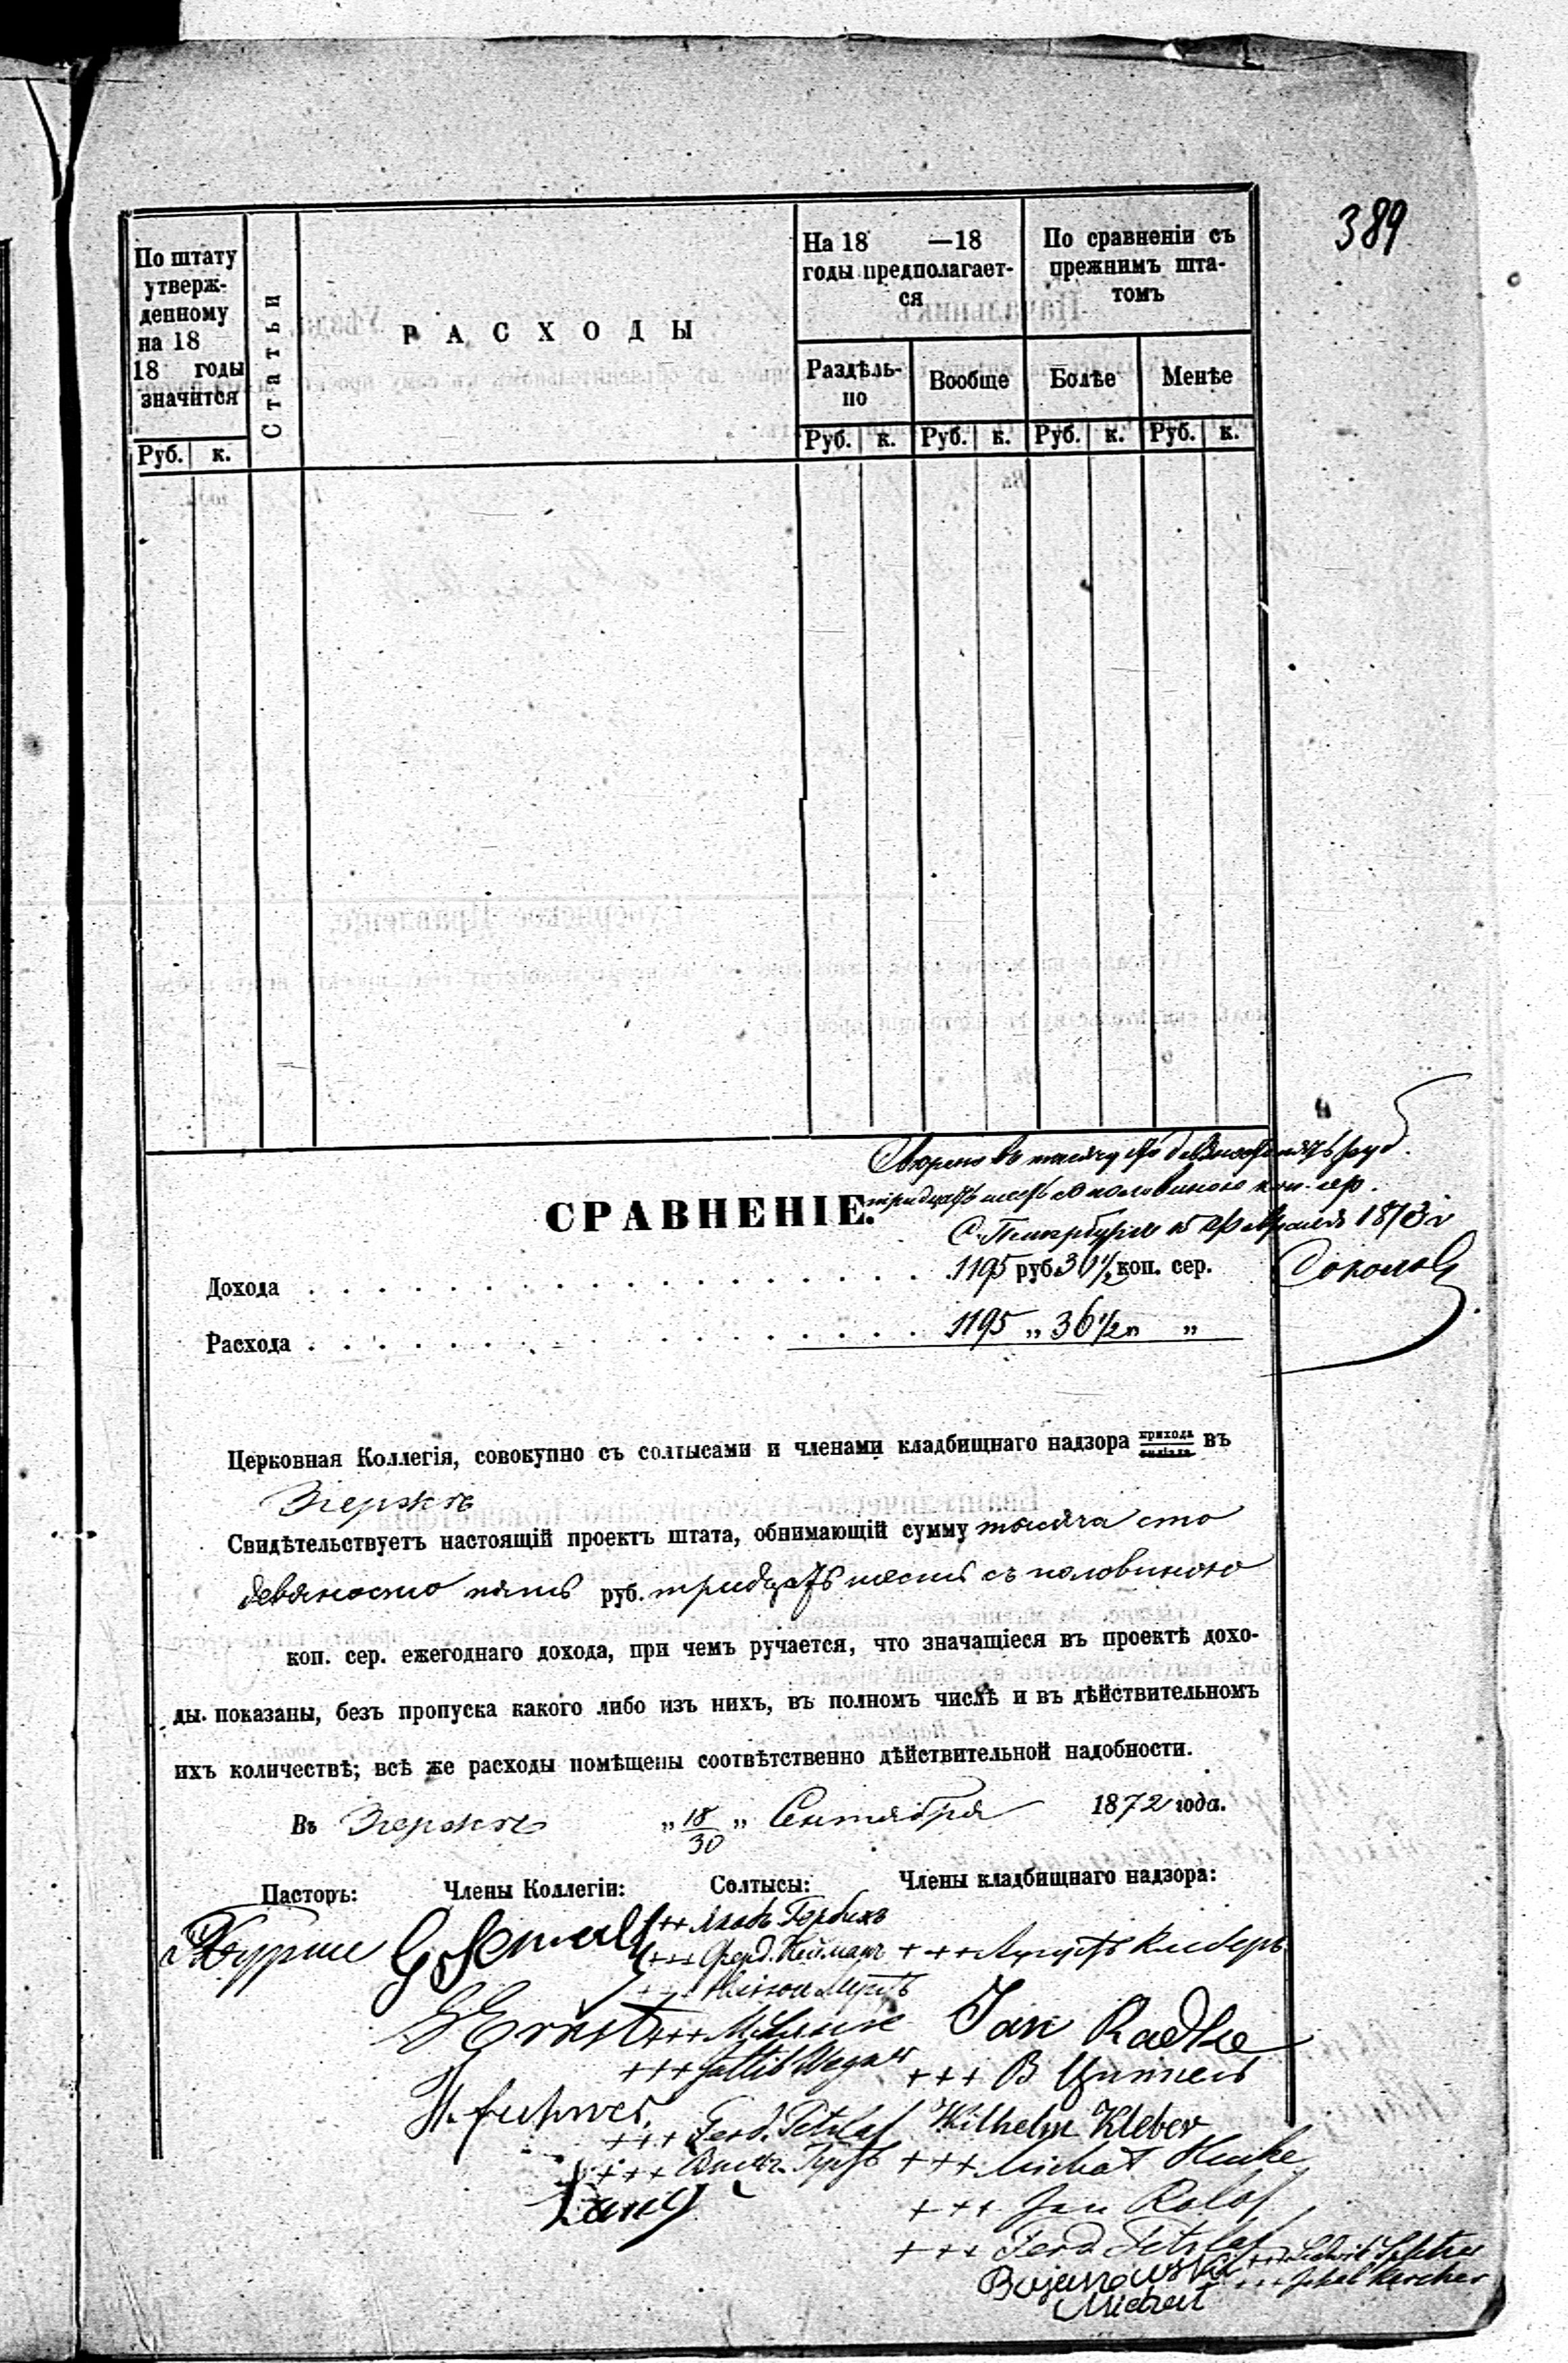 389
По штату
утверж-
денному
на 18
18 годы
значится
Статьи
РАСХОДЫ
На 18 —18
годы предполагает-
ся
По сравненіи съ
прежнимъ шта-
томъ
Раздѣль-
но
Вообще
Болѣе
Менѣе
Руб. к.
Руб. к. Руб. к. Руб. к. Руб. к.
въ тысячу сто девяносто пять руб.
тридцать шесть съ половиною коп. сер.
СРАВНЕНІЕ.
С. Петербургъ 15 Февраля 1873 г
Дохода . . . . . . . . . . . . . . . . . . 1195 руб. 36 1/2 коп. сер.
Соколовъ
Расхода . . . . . . . . . . . . . . . . . . 1195 „ 36 1/2 „ „
Церковная Коллегія, совокупно съ солтысами и членами кладбищнаго надзора прихода въ
Згержѣ
Свидѣтельствуетъ настоящій проектъ штата, обнимающій сумму тысяча сто
девяносто пять руб. тридцать шесть съ половиною
коп. сер. ежегоднаго дохода, при чемъ ручается, что значащіеся въ проектѣ дохо-
ды показаны, безъ пропуска какого либо изъ нихъ, въ полномъ числѣ и въ дѣйствительномъ
ихъ количествѣ; всѣ же расходы помѣщены соотвѣтственно дѣйствительной надобности.
Въ Згержѣ „ 18/30 „ Сентября 1872 года.
Пасторъ: Члены Коллегіи: Солтысы: Члены кладбищнаго надзора:
+++ Яковъ Гербихъ
+++ Ферд. Нейманъ +++ Августъ Клеберъ
E Ernst +++ Jan Radke
+++ Gottlib Wegner +++ B
+++ Ferd. Petzlaf Wilhelm Kleber
+++ +++ Michał Henke
Lang
+++ Jan Rolof
+++ Ferd Petzlaf +++ Ludwik
Bojanowski +++ Kercher